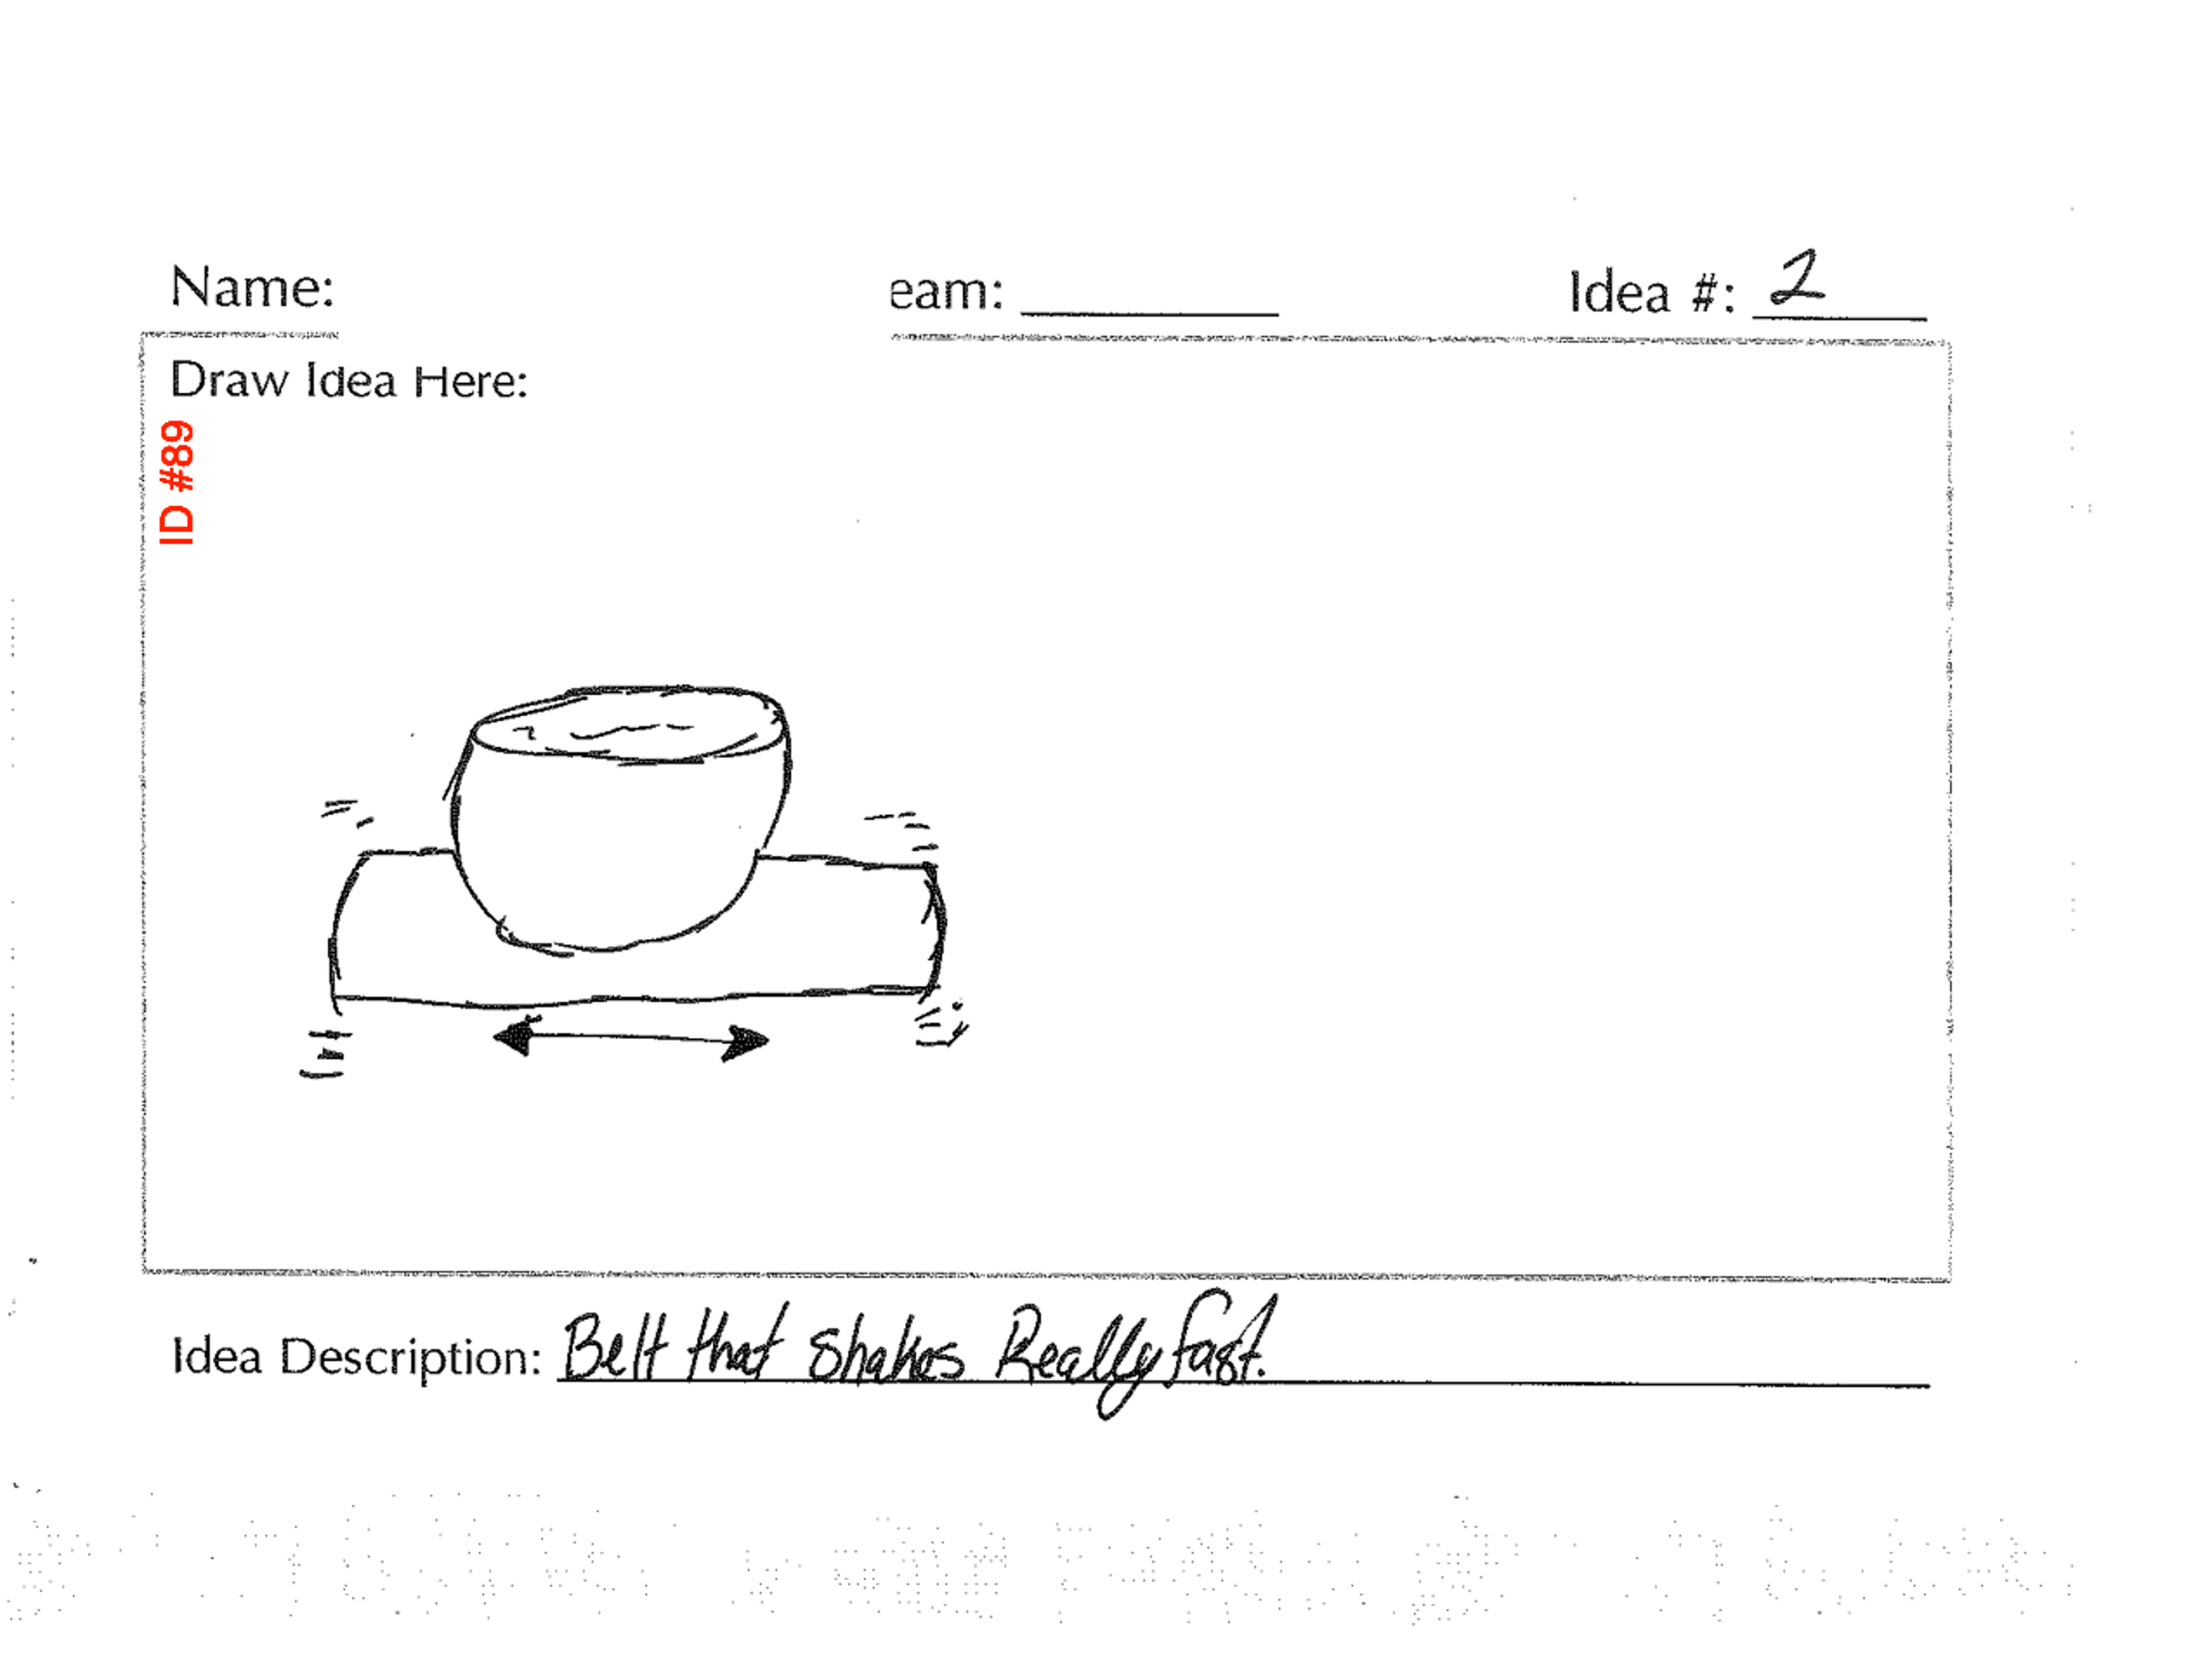 Name:
eam:
Idea #: 2
Draw Idea Here:
ID #89
Idea Description: Belt that shakes Really fast.